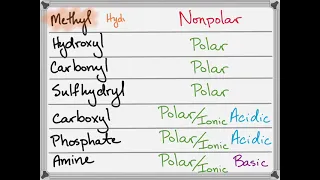 Methyl Hydr Nonpolar
Hydroxyl Polar
Carbonyl Polar
Sulfhydryl Polar
Carboxyl Polar/Ionic Acidic
Phosphate Polar/Ionic Acidic
Amine Polar/Ionic Basic